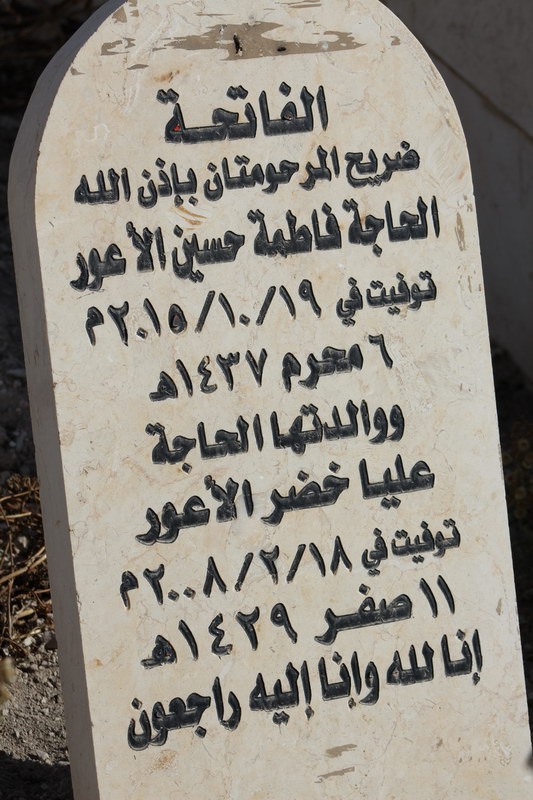 الفاتحة
ضريح المرحومتان بإذن الله
الحاجة فاطمة حسين الأعور
توفيت في ١٩/١٠/٢٠١٥م
٦ محرم ١٤٣٧هـ
ووالدتها الحاجة
عليا خضر الأعور
توفيت في ١٨/٢/٢٠٠٨م
١١ صفر ١٤٢٩هـ
إنا لله وإنا إليه راجعون